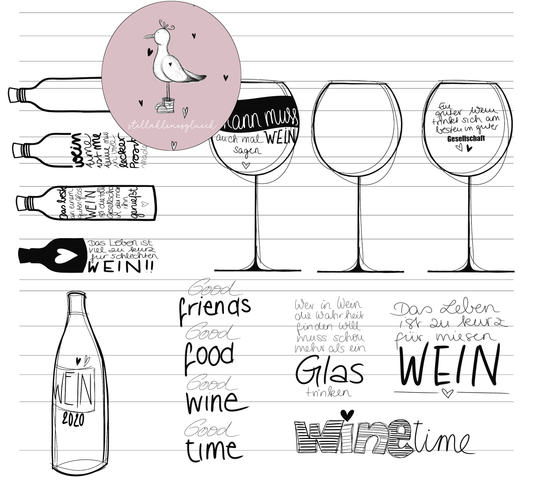 stellakleinesglueck
mann muss
auch mal WEIN
sagen
Ein
guter Wein
trinkt sich am
besten in guter
Gesellschaft
wein
time
ist me
time
lecker
Prost
Das beste
WEIN
genießt
Das Leben ist
viel zu kurz
für schlechten
WEIN!!
WEIN
2020
Good
friends
Good
food
Good
wine
Good
time
Wer in Wein
die Wahrheit
finden will
muss schon
mehr als ein
Glas
trinken
Das Leben
ist zu kurz
für miesen
WEIN
winetime